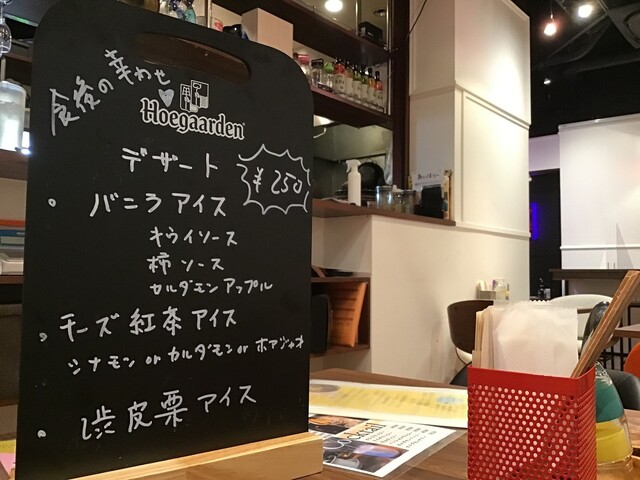 食後の幸わせ♡
Hoegaarden
デザート
¥250
・バニラアイス
キウイソース
柿ソース
カルダモンアップル
・チーズ紅茶アイス
シナモン or カルダモン or ホアジャオ
・渋皮栗アイス
Cocktail